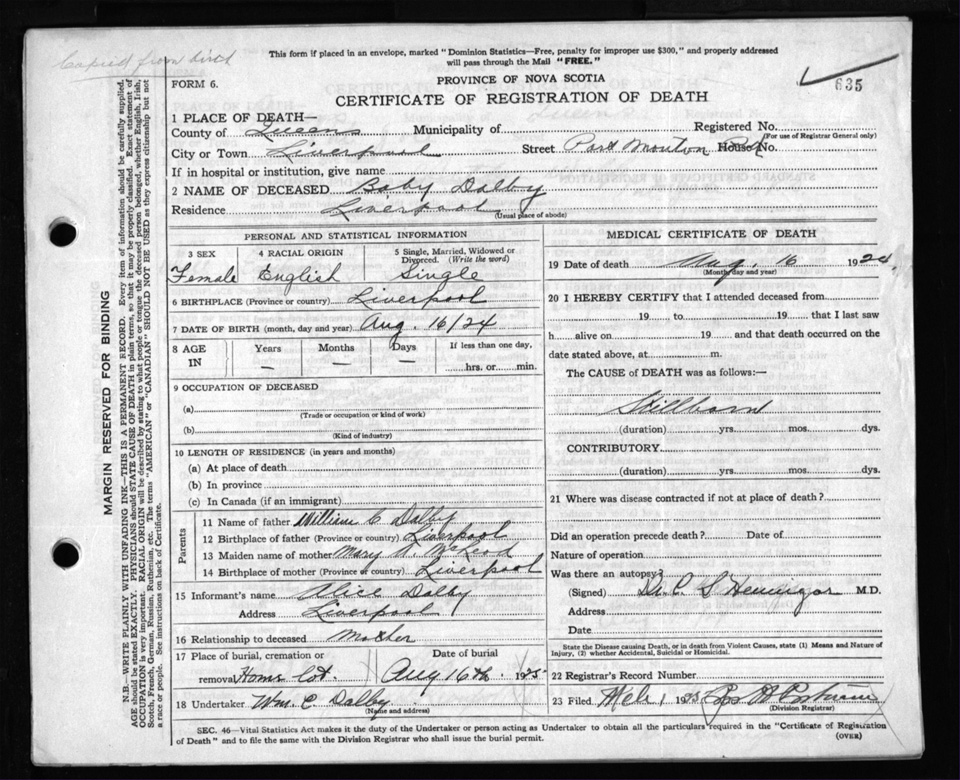 Copied from birth
This form if placed in an envelope, marked "Dominion Statistics—Free, penalty for improper use $300," and properly addressed
will pass through the Mail "FREE."
FORM 6.
PROVINCE OF NOVA SCOTIA
635
CERTIFICATE OF REGISTRATION OF DEATH
1 PLACE OF DEATH—
County of Queens Municipality of Registered No.
(For use of Registrar General only)
City or Town Liverpool Street Port Mouton Rd House No.
If in hospital or institution, give name
2 NAME OF DECEASED Baby Dalby
Residence Liverpool
(Usual place of abode)
PERSONAL AND STATISTICAL INFORMATION
3 SEX 4 RACIAL ORIGIN 5 Single, Married, Widowed or
Divorced. (Write the word)
Female English Single
6 BIRTHPLACE (Province or country) Liverpool
7 DATE OF BIRTH (month, day and year) Aug. 16/24
8 AGE IN Years Months Days If less than one day,
— — — hrs. or min.
9 OCCUPATION OF DECEASED
(a)
(Trade or occupation or kind of work)
(b)
(Kind of industry)
10 LENGTH OF RESIDENCE (in years and months)
(a) At place of death
(b) In province
(c) In Canada (if an immigrant)
Parents
11 Name of father William C Dalby
12 Birthplace of father (Province or country) Liverpool
13 Maiden name of mother Mary McLeod
14 Birthplace of mother (Province or country) Liverpool
15 Informant's name Alice Dalby
Address Liverpool
16 Relationship to deceased Mother
17 Place of burial, cremation or Date of burial
removal Home lot. Aug 16th. 1925
18 Undertaker Wm. C Dalby
(Name and address)
MEDICAL CERTIFICATE OF DEATH
19 Date of death Aug. 16 1924
(Month day and year)
20 I HEREBY CERTIFY that I attended deceased from
19 to 19 that I last saw
h alive on 19 and that death occurred on the
date stated above, at m.
The CAUSE of DEATH was as follows:—
Stillborn
(duration) yrs. mos. dys.
CONTRIBUTORY
(duration) yrs. mos. dys.
21 Where was disease contracted if not at place of death?
Did an operation precede death? Date of
Nature of operation
Was there an autopsy?
(Signed) Dr. C S Hennigar M.D.
Address
Date
State the Disease causing Death, or in death from Violent Causes, state (1) Means and Nature of
Injury, (2) whether Accidental, Suicidal or Homicidal.
22 Registrar's Record Number
23 Filed 1 1925
(Division Registrar)
SEC. 46—Vital Statistics Act makes it the duty of the Undertaker or person acting as Undertaker to obtain all the particulars required in the "Certificate of Registration
of Death" and to file the same with the Division Registrar who shall issue the burial permit.
(OVER)
MARGIN RESERVED FOR BINDING
N.B.—WRITE PLAINLY WITH UNFADING INK—THIS IS A PERMANENT RECORD. Every item of information should be carefully supplied.
AGE should be stated EXACTLY. PHYSICIANS should STATE CAUSE OF DEATH in plain terms, so that it may be properly classified. Exact statement of
OCCUPATION is very important. RACIAL ORIGIN will be described by stating to what people or tongue the deceased person belonged, whether English, Irish,
Scotch, French, German, Russian, Ruthenian, etc. The terms "AMERICAN" or "CANADIAN" SHOULD NOT BE USED as they express citizenship but not
a race or people. See instructions on back of Certificate.